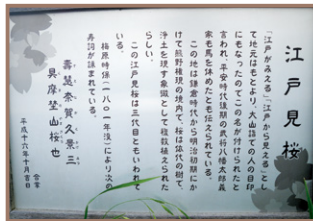 江戸見桜
「江戸がみえる」「江戸から見える」とし
て地元はもとより、大山詣での人の目印
にもなったのでこの名が付けられたと
言われ、平安時代後期の武将八幡太郎義
家も馬を休めたとも伝えられている。
この地は鎌倉時代から明治初期にか
けて熊野権現の境内で、桜は弥代の樹で、
浄土を現す象徴として複数植えられた
らしい。
この江戸見桜は三代目ともいわれて
いる。
梅原時保(一八〇一年没)により次の
寿詞が詠まれている。
寿慧奈賀久景三
具摩埜山桜也
平成十六年十月吉日